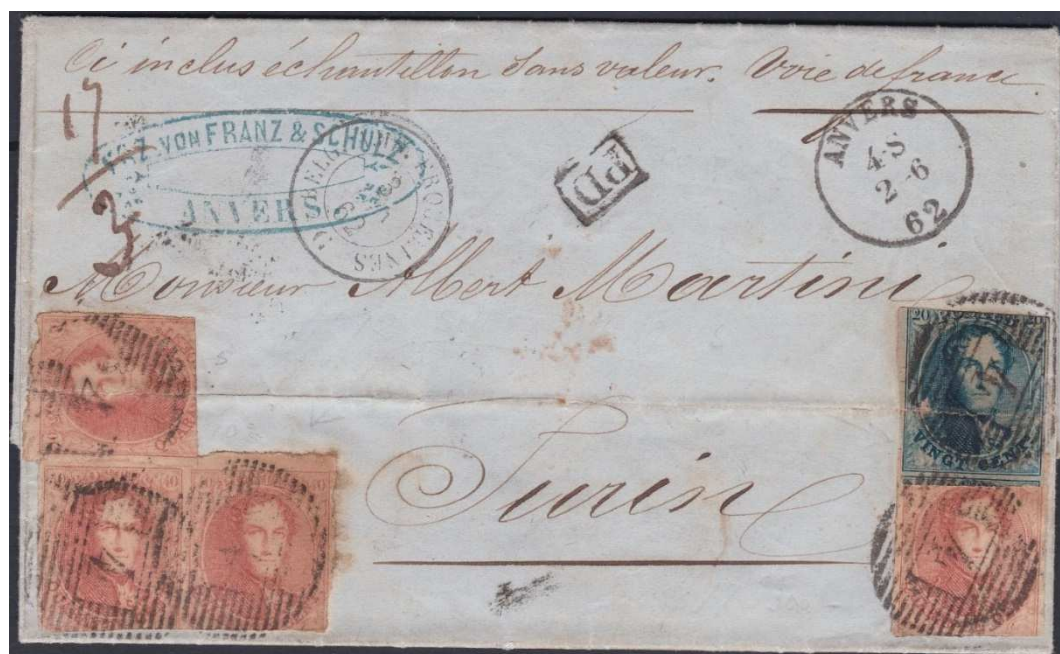 Ci inclus échantillon Sans valeur. Voie de france
17
3
VON FRANZ & SCHULZ
ANVERS
BELG. QUERVINES
PD
ANVERS
4-S
2-6
62
Monsieur Albert Martini
Turin
20
VINGT CENT
40